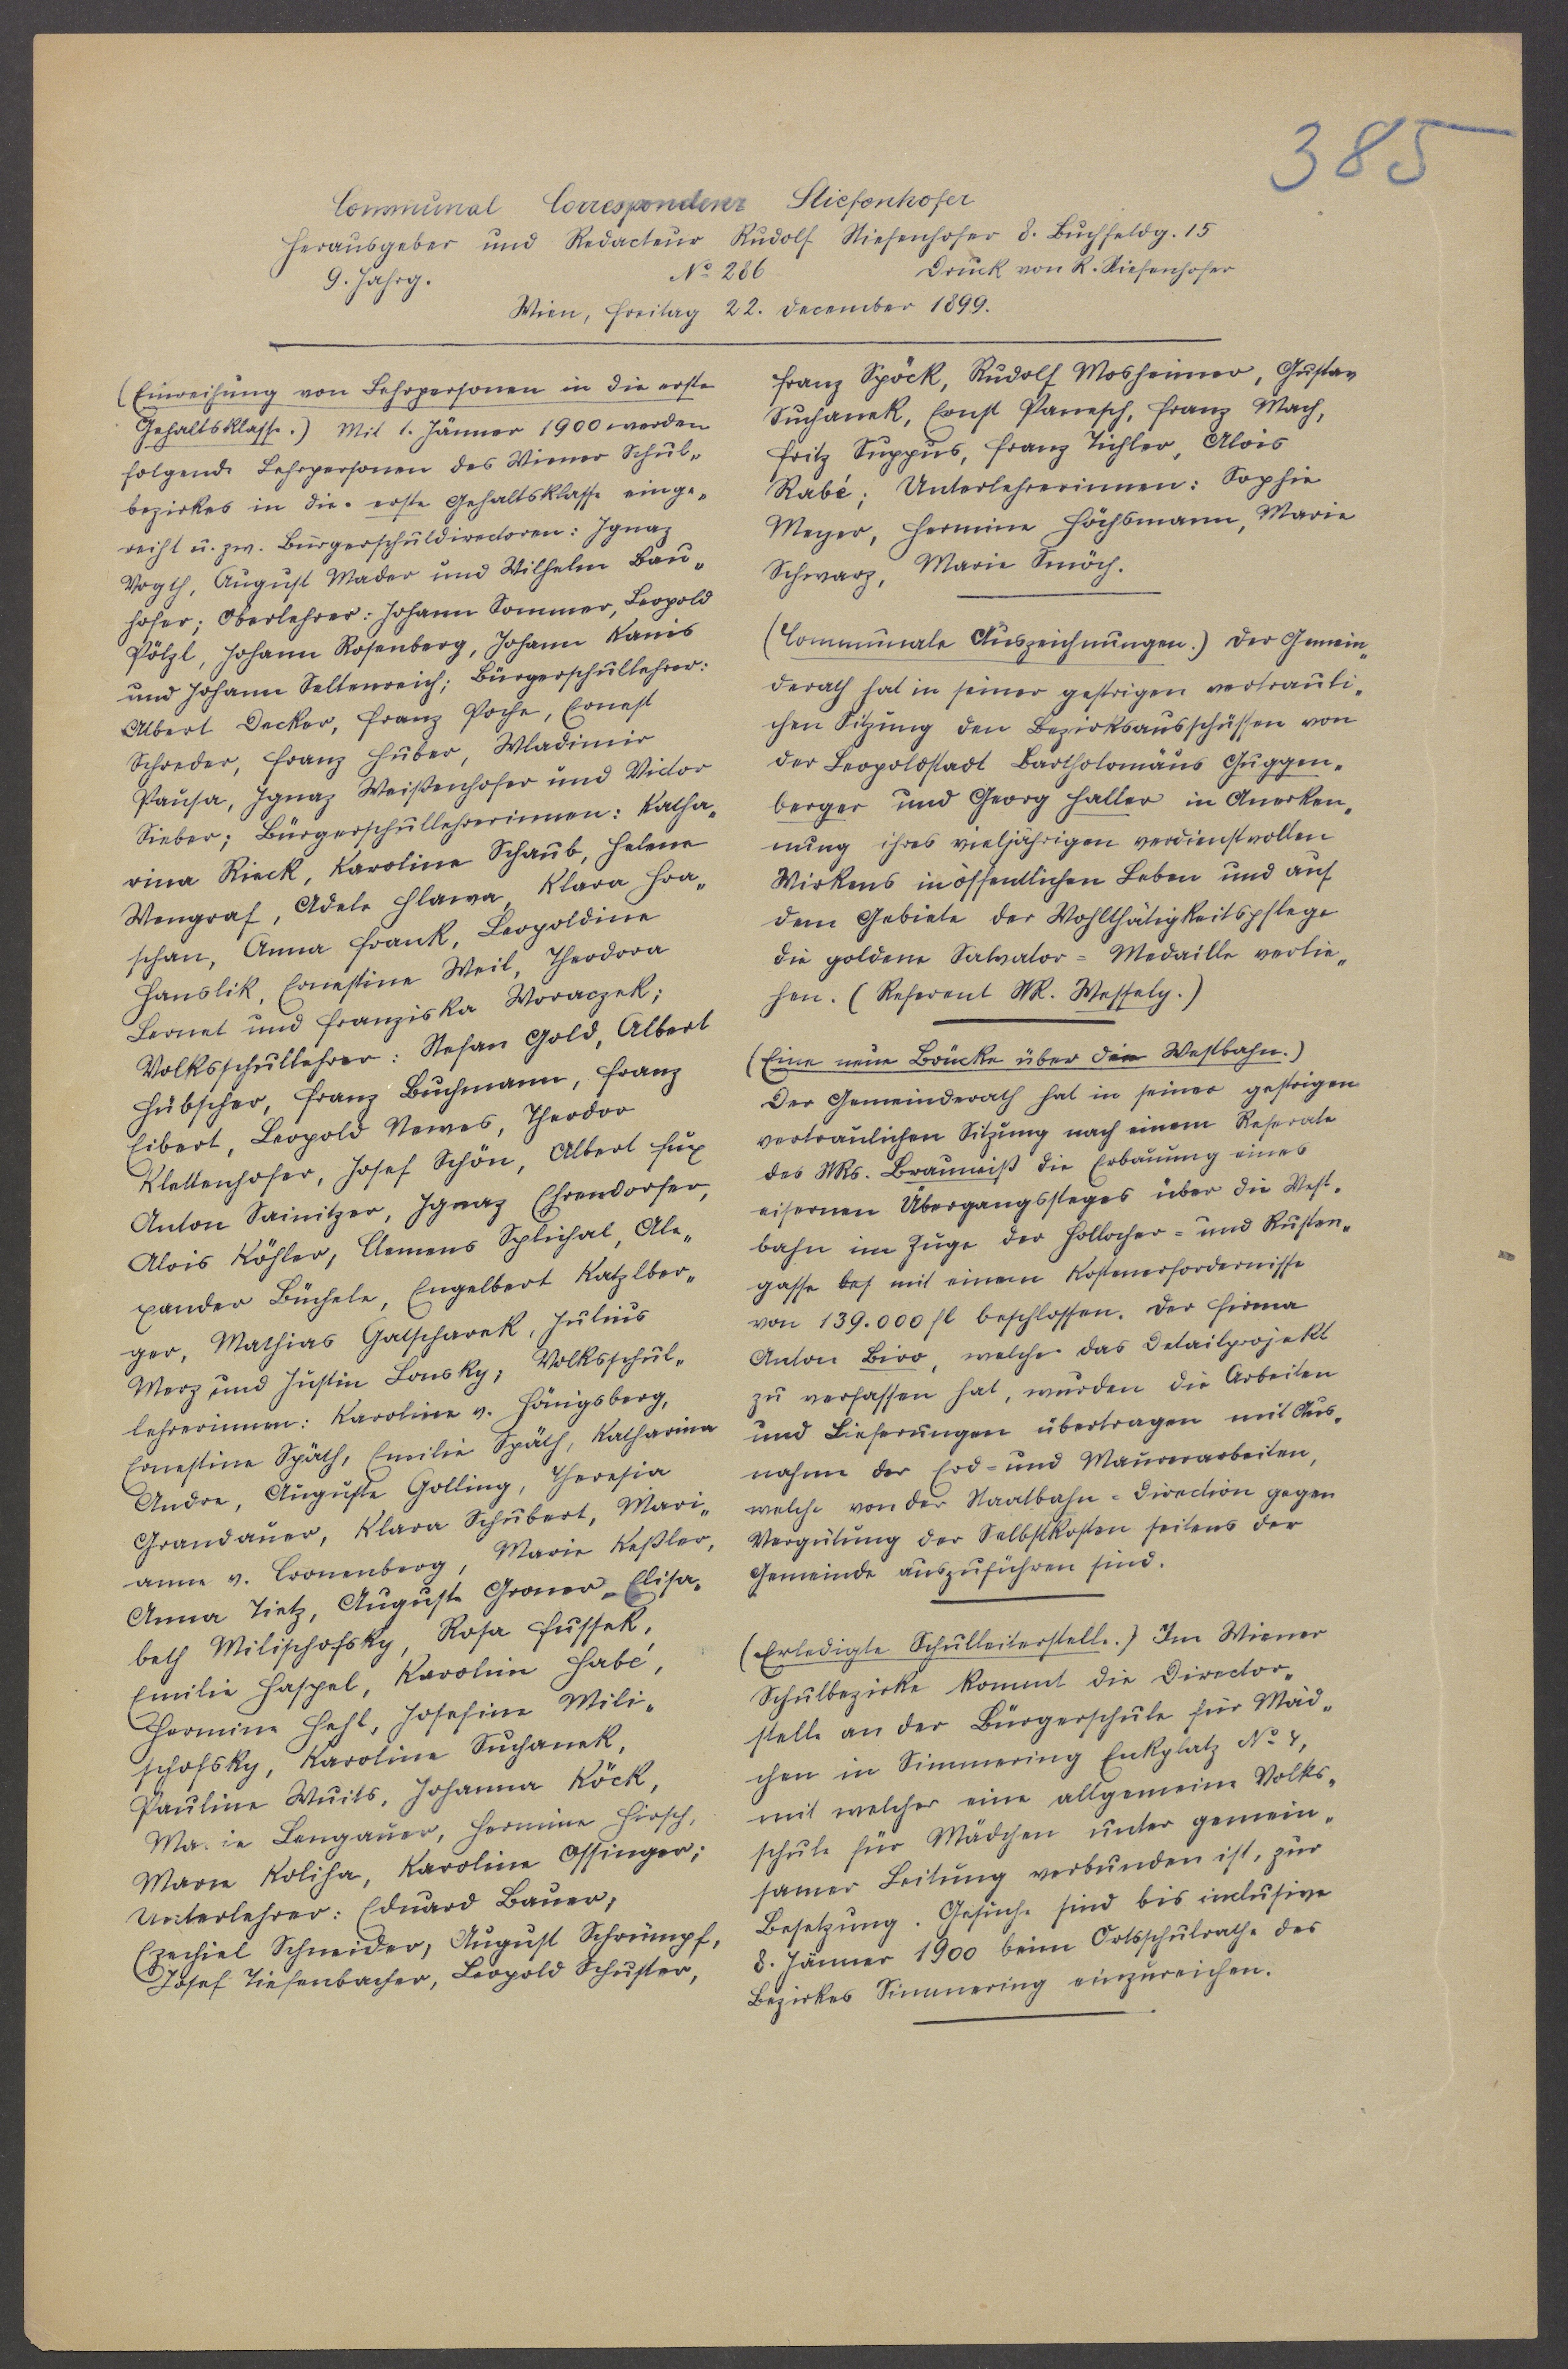 385
Communal Correspondenz Stiefenhofer
Herausgeber und Redacteur Rudolf Stiefenhofer 8. Buchfeldg. 15
9. Jahrg. No 286 Druck von R. Stiefenhofer
Wien, Freitag 22. December 1899.
(Einreihung von Lehrpersonen in die erste
Gehaltsklasse.) Mit 1. Jänner 1900 werden
folgende Lehrpersonen des Wiener Schul„
bezirkes in die erste Gehaltsklasse einge„
reiht u. zw. Bürgerschuldirectoren: Ignaz
Vogth, August Mader und Wilhelm Bau„
hofer; Oberlehrer: Johann Sommer, Leopold
Pölzl, Johann Rosenberg, Johann Kanis
und Johann Seltenreich; Bürgerschullehrer:
Albert Decker, Franz Poche, Ernest
Schreder, Franz Huber, Wladimir
Pausa, Ignaz Weißenhofer und Victor
Sieber; Bürgerschullehrerinnen: Katha„
rina Rieck, Karoline Schaub, Helene
Wengraf, Adele Hlawa, Klara Hra„
schan, Anna Frank, Leopoldine
Hanslik, Ernestine Weil, Theodora
Lernet und Franziska Woraczek;
Volksschullehrer: Stefan Gold, Albert
Hübscher, Franz Buchmann, Franz
Eibert, Leopold Newes, Theodor
Klettenhofer, Josef Schön, Albert Fux
Anton Sainitzer, Ignaz Ehrendorfer,
Alois Köhler, Clemens Splichal, Ale„
xander Büchele, Engelbert Katzlber„
ger, Mathias Gatscharek, Julius
Merz und Justin Lonsky; Volksschul„
lehrerinnen: Karoline v. Hönigsberg,
Ernestine Späth, Emilie Späth, Katharina
Andre, Auguste Golling, Theresia
Grandauer, Klara Schubert, Mari„
anne v. Cronenberg, Marie Keßler,
Anna Tietz, Auguste Groner, Elisa„
beth Milischofsky, Rosa Fussek,
Emilie Haspel, Karoline Habé,
Hermine Hehl, Josefine Mili„
schofsky, Karoline Suchanek,
Pauline Wuits, Johanna Köck,
Marie Lengauer, Hermine Hirsch,
Marie Koliha, Karoline Assinger;
Unterlehrer: Eduard Bauer,
Ezechiel Schneider, August Schrümpf,
Josef Tiefenbacher, Leopold Schuster,
Franz Spöck, Rudolf Mosheimer, Gustav
Suchanek, Ernst Panesch, Franz Mach,
Fritz Suppus, Franz Tichler, Alois
Rabé; Unterlehrerinnen: Sophie
Meyer, Hermine Höchsmann, Marie
Schwarz, Marie Smöch.
(Communale Auszeichnungen.) Der Gemein„
derath hat in seiner gestrigen vertrauli„
chen Sitzung den Bezirksausschüssen von
der Leopoldstadt Bartholomäus Guggen„
berger und Georg Haller in Anerken„
nung ihres vieljährigen verdienstvollen
Wirkens in öffentlichen Leben und auf
dem Gebiete der Wohlthätigkeitspflege
die goldene Salvator=Medaille verlie„
hen. (Referent StR. Wessely.)
(Eine neue Brücke über die Westbahn.)
Der Gemeinderath hat in seiner gestrigen
vertraulichen Sitzung nach einem Referate
des StRs. Brauneiß die Erbauung eines
eisernen Übergangssteges über die West„
bahn im Zuge der Hollocher= und Rusten„
gasse bes mit einem Kostenerfordernisse
von 139.000 fl beschlossen. Der Firma
Anton Biro, welche das Detailprojekt
zu verfassen hat, wurden die Arbeiten
und Lieferungen übertragen mit Aus„
nahme der Erd= und Maurerarbeiten,
welche von der Staatbahn=Direction gegen
Vergütung der Selbstkosten seitens der
Gemeinde auszuführen sind.
(Erledigte Schulleiterstelle.) Im Wiener
Schulbezirke kommt die Director„
stelle an der Bürgerschule für Mäd„
chen in Simmering Enkplatz No 4,
mit welcher eine allgemeine Volks„
schule für Mädchen unter gemein„
samer Leitung verbunden ist, zur
Besetzung. Gesuche sind bis inclusive
8. Jänner 1900 beim Ortsschulrathe des
Bezirkes Simmering einzureichen.